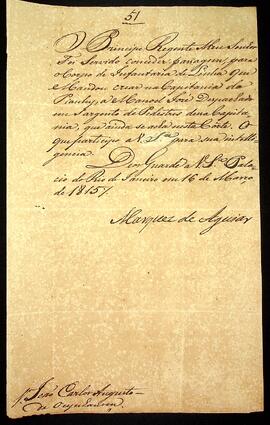 51
O Principe Regente Meu Senhor
Foi Servido conceder passagem para
o Corpo de Infantaria de Linha que
Mandou crear na Capitania do
Piauhy, a Manoel José
em Sargento de Pedestres dessa Capita
nia, que ainda se acha nesta Corte. O
que participo a V. S.ª para sua intelli
gencia.
Deos Guarde a V. S.ª Pala
cio do Rio de Janeiro em 16 de Março
de 1815
Marquez de Aguiar
João Carlos Augusto
de Oeynhausen